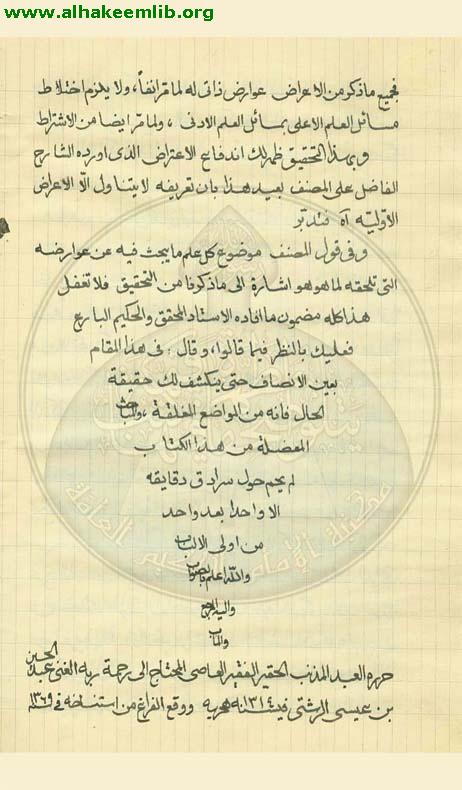 www.alhakeemlib.org
فجميع ماذكر من الاعراض عوارض ذاتى له لما مر انفاً، ولا يلزم اختلاط
مسائل العلم الاعلى بمسائل العلم الادنى ، ولما مر ايضا من الاشتراط
و بهذا التحقيق ظهر لك اندفاع الاعتراض الذى اورده الشارح
الفاضل على المصنف بعيد هذا بان تعريفه لا يتناول الّا الاعراض
الأوّليّه آه فتدبّر
و فى قول المصنف موضوع كل علم ما يبحث فيه عن عوارضه
التى تلحقه لما هو هو اشارة الى ما ذكرنا من التحقيق فلا تغفل
هذا كله مضمون ما افاده الاستاد المحقق والحكيم البارع
فعليك بالنظر فيما قالوا، و قال : فى هذا المقام
بعين الانصاف حتى ينكشف لك حقيقة
الحال فانه من المواضع المغلقة ، والمباحث
المعضلة من هذا الكتاب
لم يحم حول سرادق دقايقه
الا واحدا بعد واحد
من اولى الالباب
والله اعلم بالصواب
واليه المرجع
والمآب
حرره العبد المذنب الحقير الفقير العاصى المحتاج الى رحمة ربه الغنى عبد الحسين
بن عيسى الرشتى فى سنة ١٣١٤ هجريه ووقع الفراغ من استنساخه فى ١٣٦٩